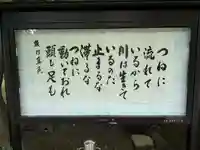 つねに
流れて
いるから
川は生きて
いるのだ
止まるな
滞るな
つねに
動いておれ
頭も足も